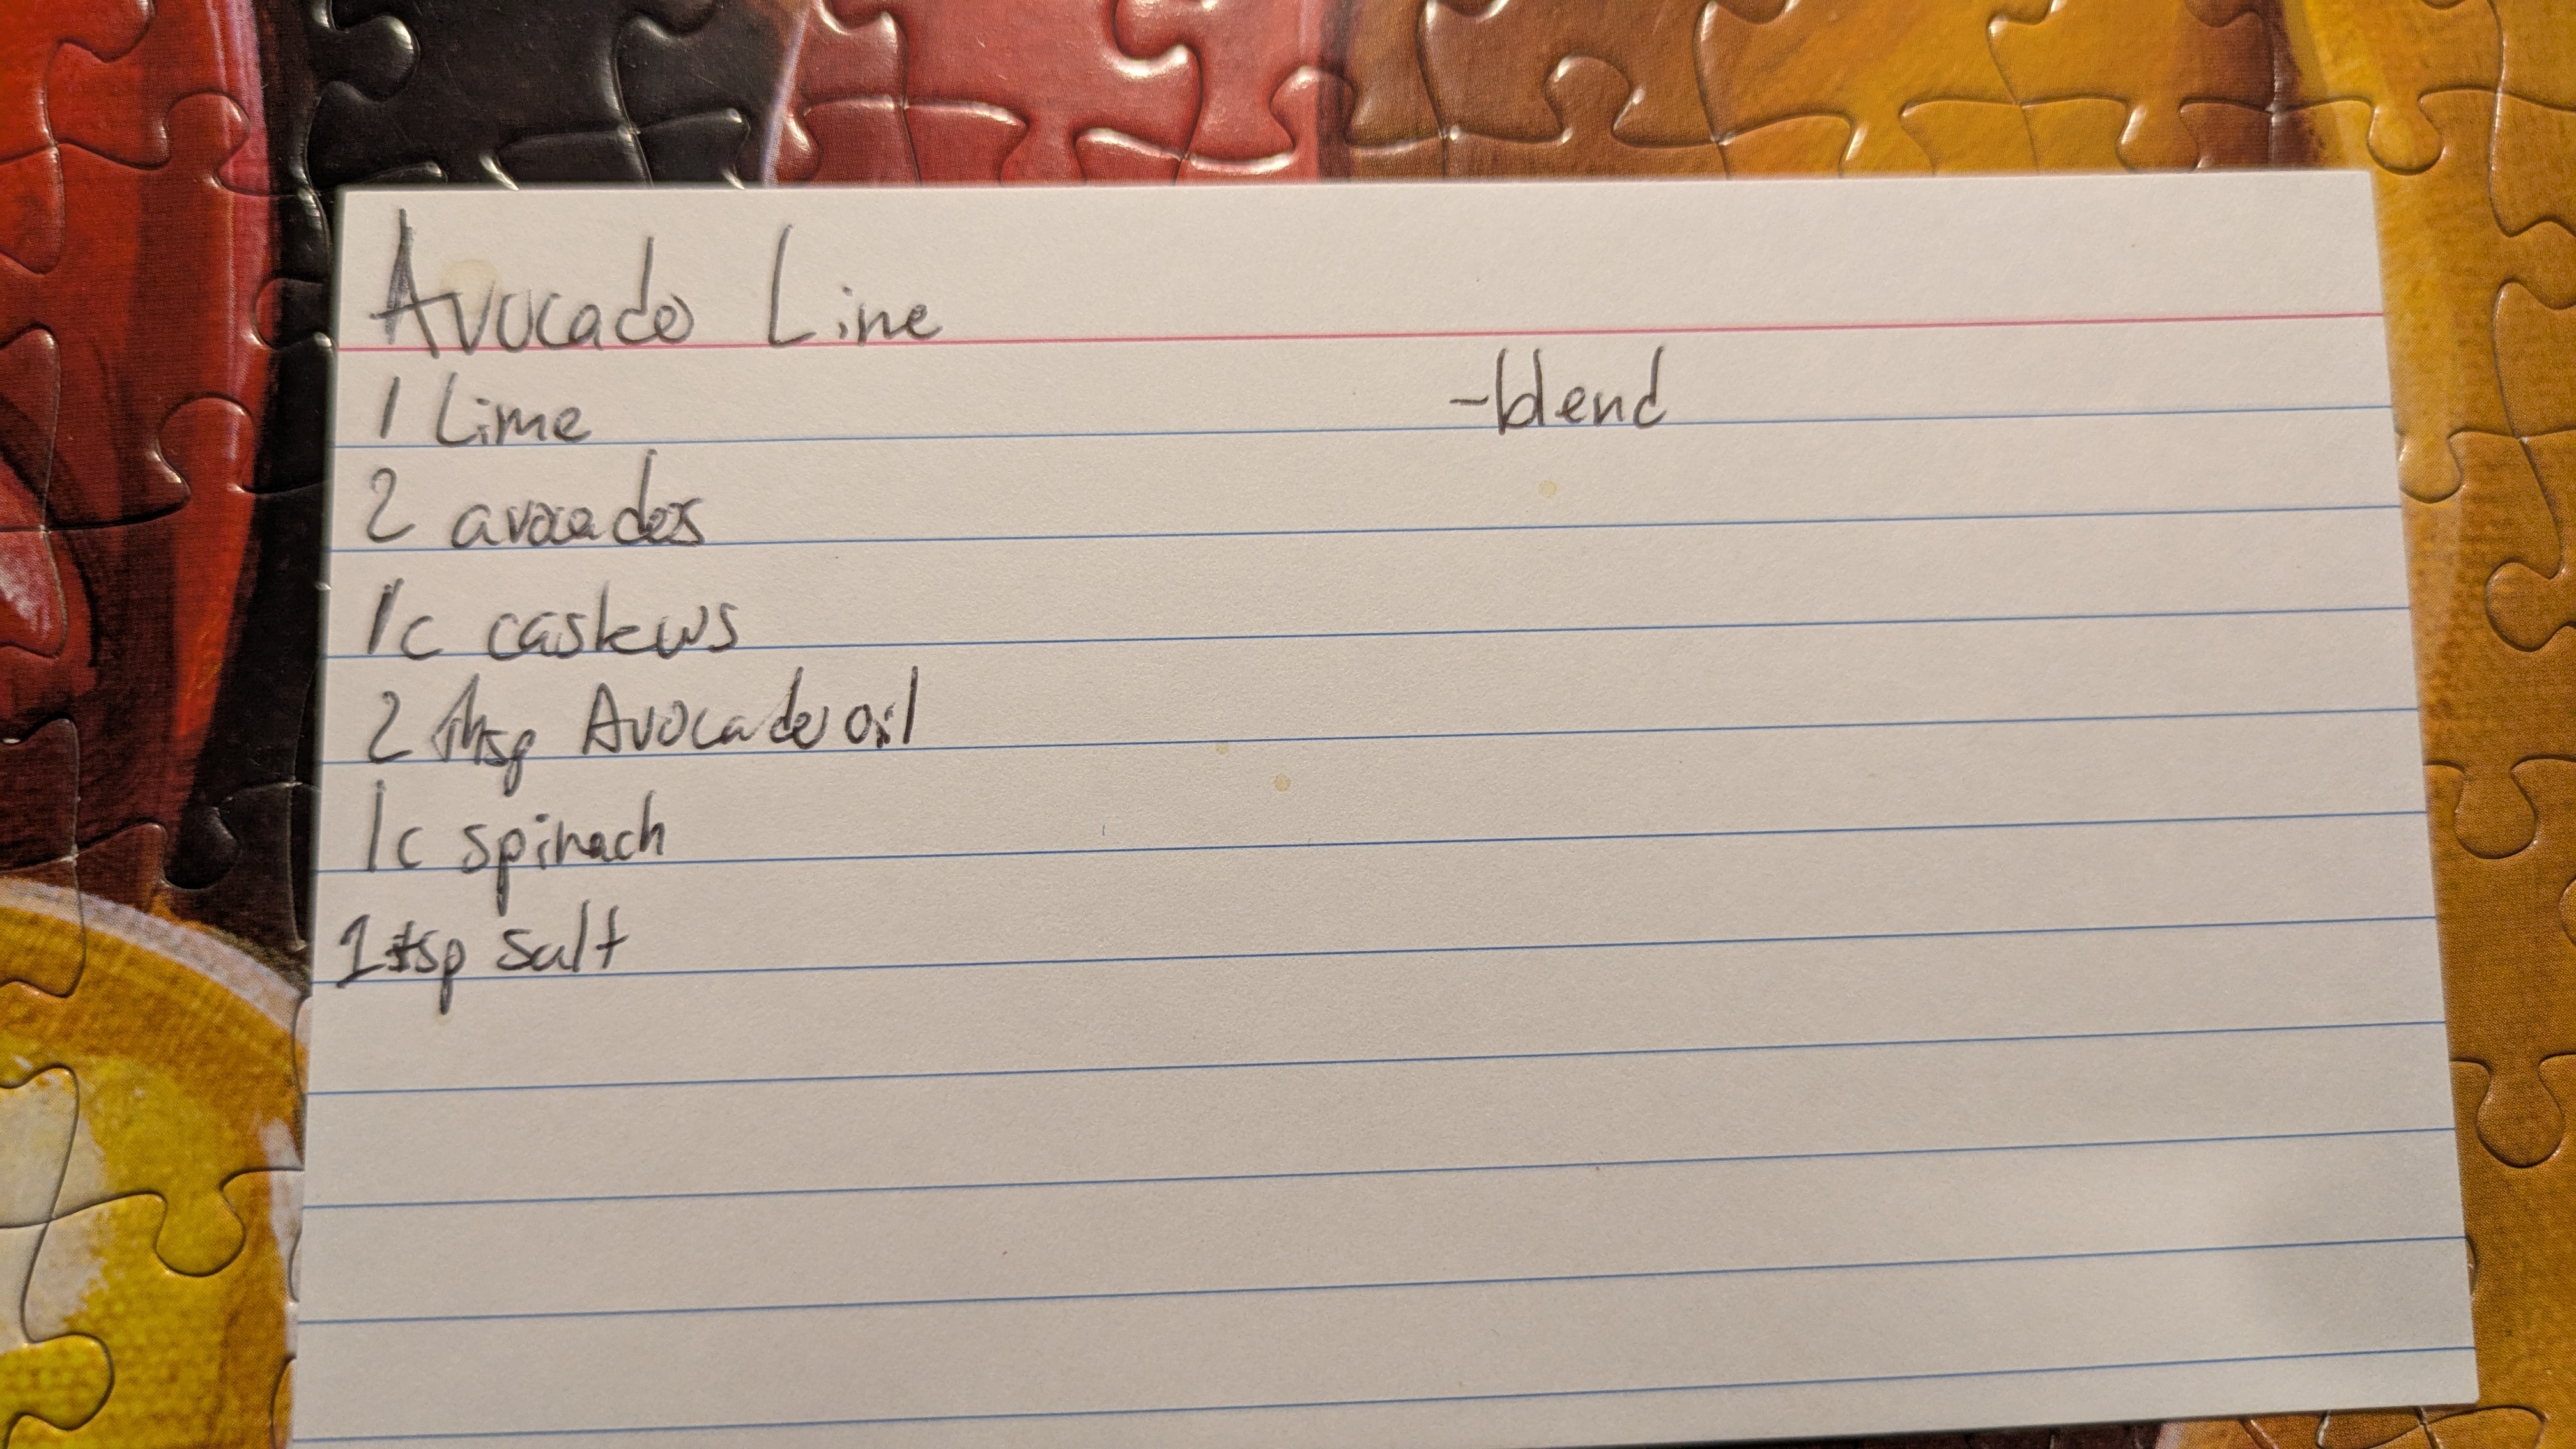 Avocado Line
1 Lime
-blend
2 avocados
1c cashews
2 Avocado oil
1c spinach
1 tsp salt